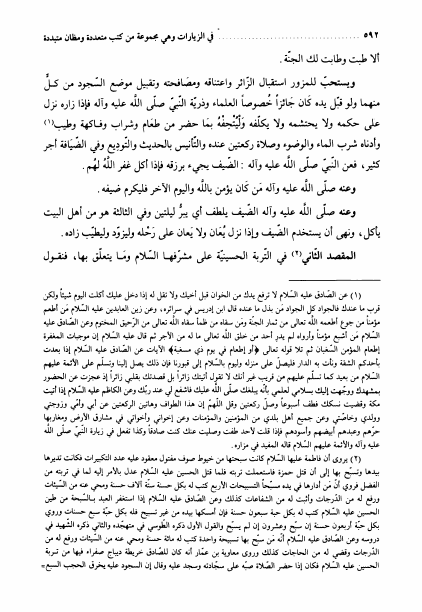 ٥٩٢ ........ في الزيارات وهي مجموعة من كتب متعددة ومظان متبددة
ألا طبت وطابت لك الجنّة.
ويستحبّ للمزور استقبال الزّائر واعتناقه ومصافحته وتقبيل موضع السّجود من كلّ
منهما ولو قبّل يده كان جَائزاً خُصوصاً العلماء وذريّة النّبيّ صلّى الله عليه وآله فإذا زاره نزل
على حكمه ولا يحتشمه ولا يكلّفه وَلْيُتْحِفُهُ بمَا حضر من طعَام وشراب وفـاكهة وطيب(١)
وأدناه شرب الماء والوضوء وصلاة ركعتين عنده والتّأنيس بالحديث والتّوديع وفي الضّيافة أجر
كثير، فعن النّبيّ صلّى اللّه عليه وآله : الضّيف يجيء برزقه فإذا أكل غفر اللّه لهُم.
وعنه صلّى الله عليه وآله مَن كَان يؤمن باللّه واليوم الآخر فليكرم ضيفه.
وعنه صلّى الله عليه وآله الضّيف يلطف أي يبرُّ ليلتين وفي الثالثة هو من أهل البيت
يأكل، ونهى أن يستخدم الضّيف وإذا نزل يُعان ولا يَعان على رَحْله وليزوّد وليطيّب زاده.
المقصد الثّاني(٢) في التّربة الحسينيّة على مشرّفهـا السّلام ومَـا يتعلّق بها، فنقول
(١) عن الصّادق عليه السّلام لا ترفع يدك من الخوان قبل أخيك ولا تقل له إذا دخل عليك أكلت اليوم شيئاً ولكن
قرب ما عندك فالجواد كل الجواد مَن بذل ما عنده قال ابن إدريس في سرائره، وعن زين العابدين عليه السّلام مَن أطعم
مؤمناً من جوع أطعمه الله تعالى من ثمار الجنّة ومَن سقاه من ظمأ سقاه اللّه تعالى من الرّحيق المختوم وعن الصّادق عليه
السّلام مَن أشبع مؤمناً وأرواه لم يدرِ أحد من خلق اللّه تعالى ما له من الأجر ثم قال عليه السّلام إن موجبات المغفرة
إطعام المؤمن السّغبان ثم تلا قوله تعالى ﴿أو إطعام في يوم ذي مسغبة﴾ الآيات عن الصّادق عليه السّلام إذا بعدت
بأحدكم الشقة ونأت به الدار فليصلِّ على منزله وليؤم بالسّلام إلى قبورنا فإن ذلك يصل إلينا وتسلّم على الأئمة عليهم
السّلام من بعيد كما تسلّم عليهم من قريب غير أنك لا تقول أتيتك زائراً بل قصدتك بقلبي زائراً إذ عجزت عن الحضور
بمشهدك ووجّهت إليك سلامي لعلمي بأنّه يبلغك صلّى اللّه عليك فاشفع لي عند ربّك وعن الكاظم عليه السّلام إذا أتيت
مكة وقضيت نسكك فطف أسبوعاً وصلِّ ركعتين وقل اللّهمّ إن هذا الطواف وهاتين الركعتين عن أبي وأمّي وزوجتي
وولدي وخاصّتي وعن جميع أهل بلدي من المؤمنين والمؤمنات وعن إخواني وأخواتي في مشارق الأرض ومغاربها
حرّهم وعبدهم أبيضهم وأسودهم فإذا قلت لأحد طفت وصليت عنك كنت صادقاً وكذا تفعل في زيارة النّبي صلّى اللّه
عليه وآله والأئمة عليهم السّلام قاله المفيد في مزاره.
(٢) يروى أن فاطمة عليها السّلام كانت سبحتها من خيوط صوف مفتول معقود عليه عدد التّكبيرات فكانت تديرها
بيدها وتسبّح بها إلى أن قتل حمزة فاستعملت تربته فلما قتل الحسين عليه السّلام عدل بالأمر إليه لما في تربته من
الفضل فروي أن مَن أدارها في يده مسبّحاً التسبيحات الأربع كتب له بكل حبّة ستّة آلاف حسنة ومحي عنه من السّيئات
ورفع له من الدّرجات وأثبت له من الشفاعات كذلك وعن الصّادق عليه السّلام إذا استغفر العبد بالسّبحة من طين
الحسين عليه السّلام كتب له بكل حبّة سبعون حسنة فإن أمسكها بيده من غير تسبيح فله بكل حبّة سبع حسنات وروي
بكل حبّة أربعون حسنة إن سبّح وعشرون إن لم يسبّح والقول الأول ذكره الطّوسي في متهجّده والثاني ذكره الشّهيد في
دروسه وعن الصّادق عليه السّلام أنّه من سبّح بها تسبيحة واحدة كتب له مائة حسنة ومحي عنه من السّيئات ورفع له من
الدّرجات وقضي له من الحاجات كذلك وروى معاوية بن عمّار أنه كان للصّادق خريطة ديباج صفراء فيها من تربة
الحسين عليه السّلام فكان إذا حضر الصّلاة صبّه على سجّادته وسجد عليه وقال إن السّجود عليه يخرق الحجب السبع=